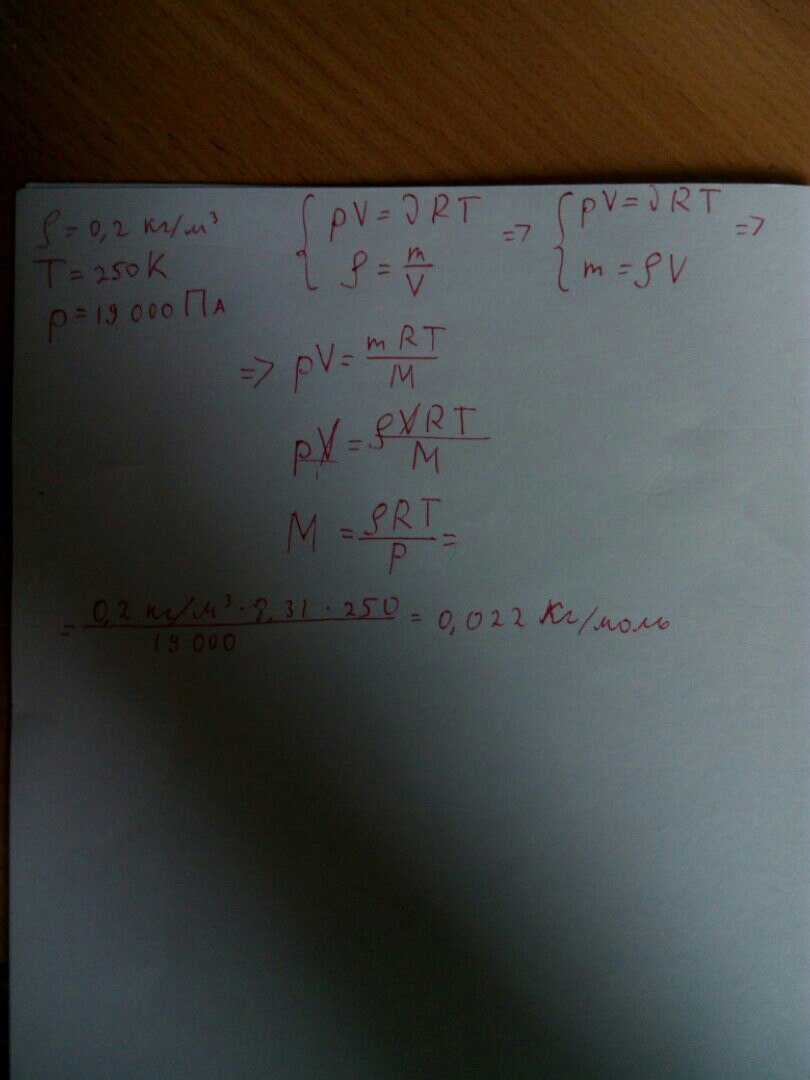 ρ = 0,2 кг/м³
T = 250 К
p = 19 000 ПА
{ pV = νRT
ρ = m/V
=> { pV = νRT
m = ρV
=>
=> pV = mRT/M
pV = ρVRT/M
M = ρRT/P =
= 0,2 кг/м³ · 8,31 · 250 / 19 000 = 0,022 Кг/моль